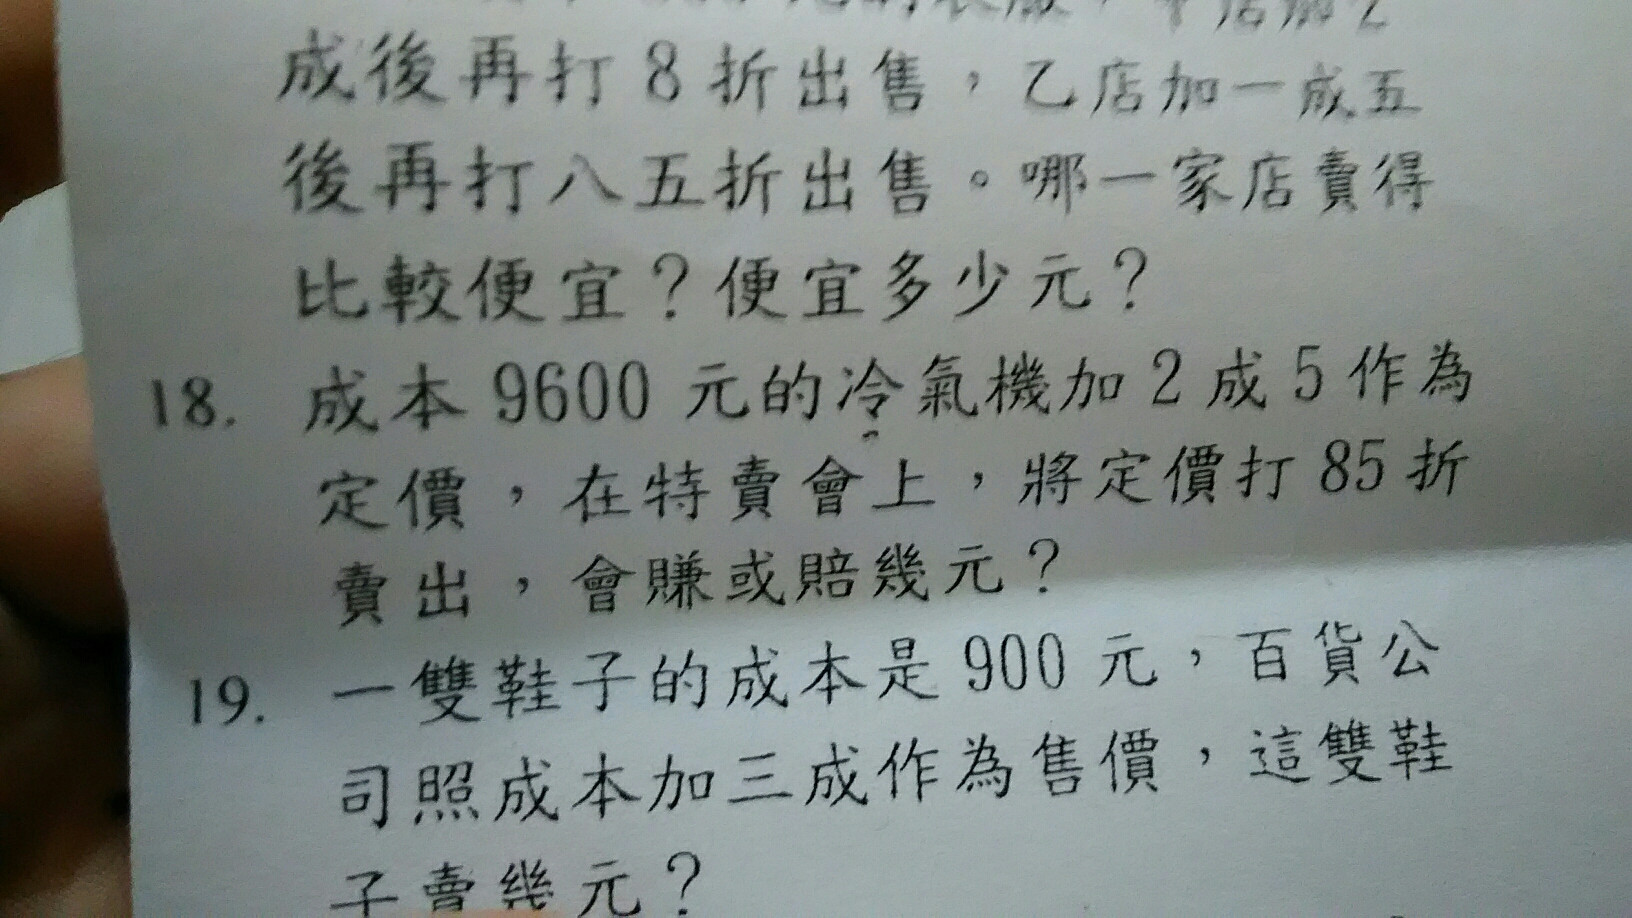 成後再打8折出售，乙店加一成五
後再打八五折出售。哪一家店賣得
比較便宜？便宜多少元？
18. 成本9600元的冷氣機加2成5作為
定價，在特賣會上，將定價打85折
賣出，會賺或賠幾元？
19. 一雙鞋子的成本是900元，百貨公
司照成本加三成作為售價，這雙鞋
子賣幾元？